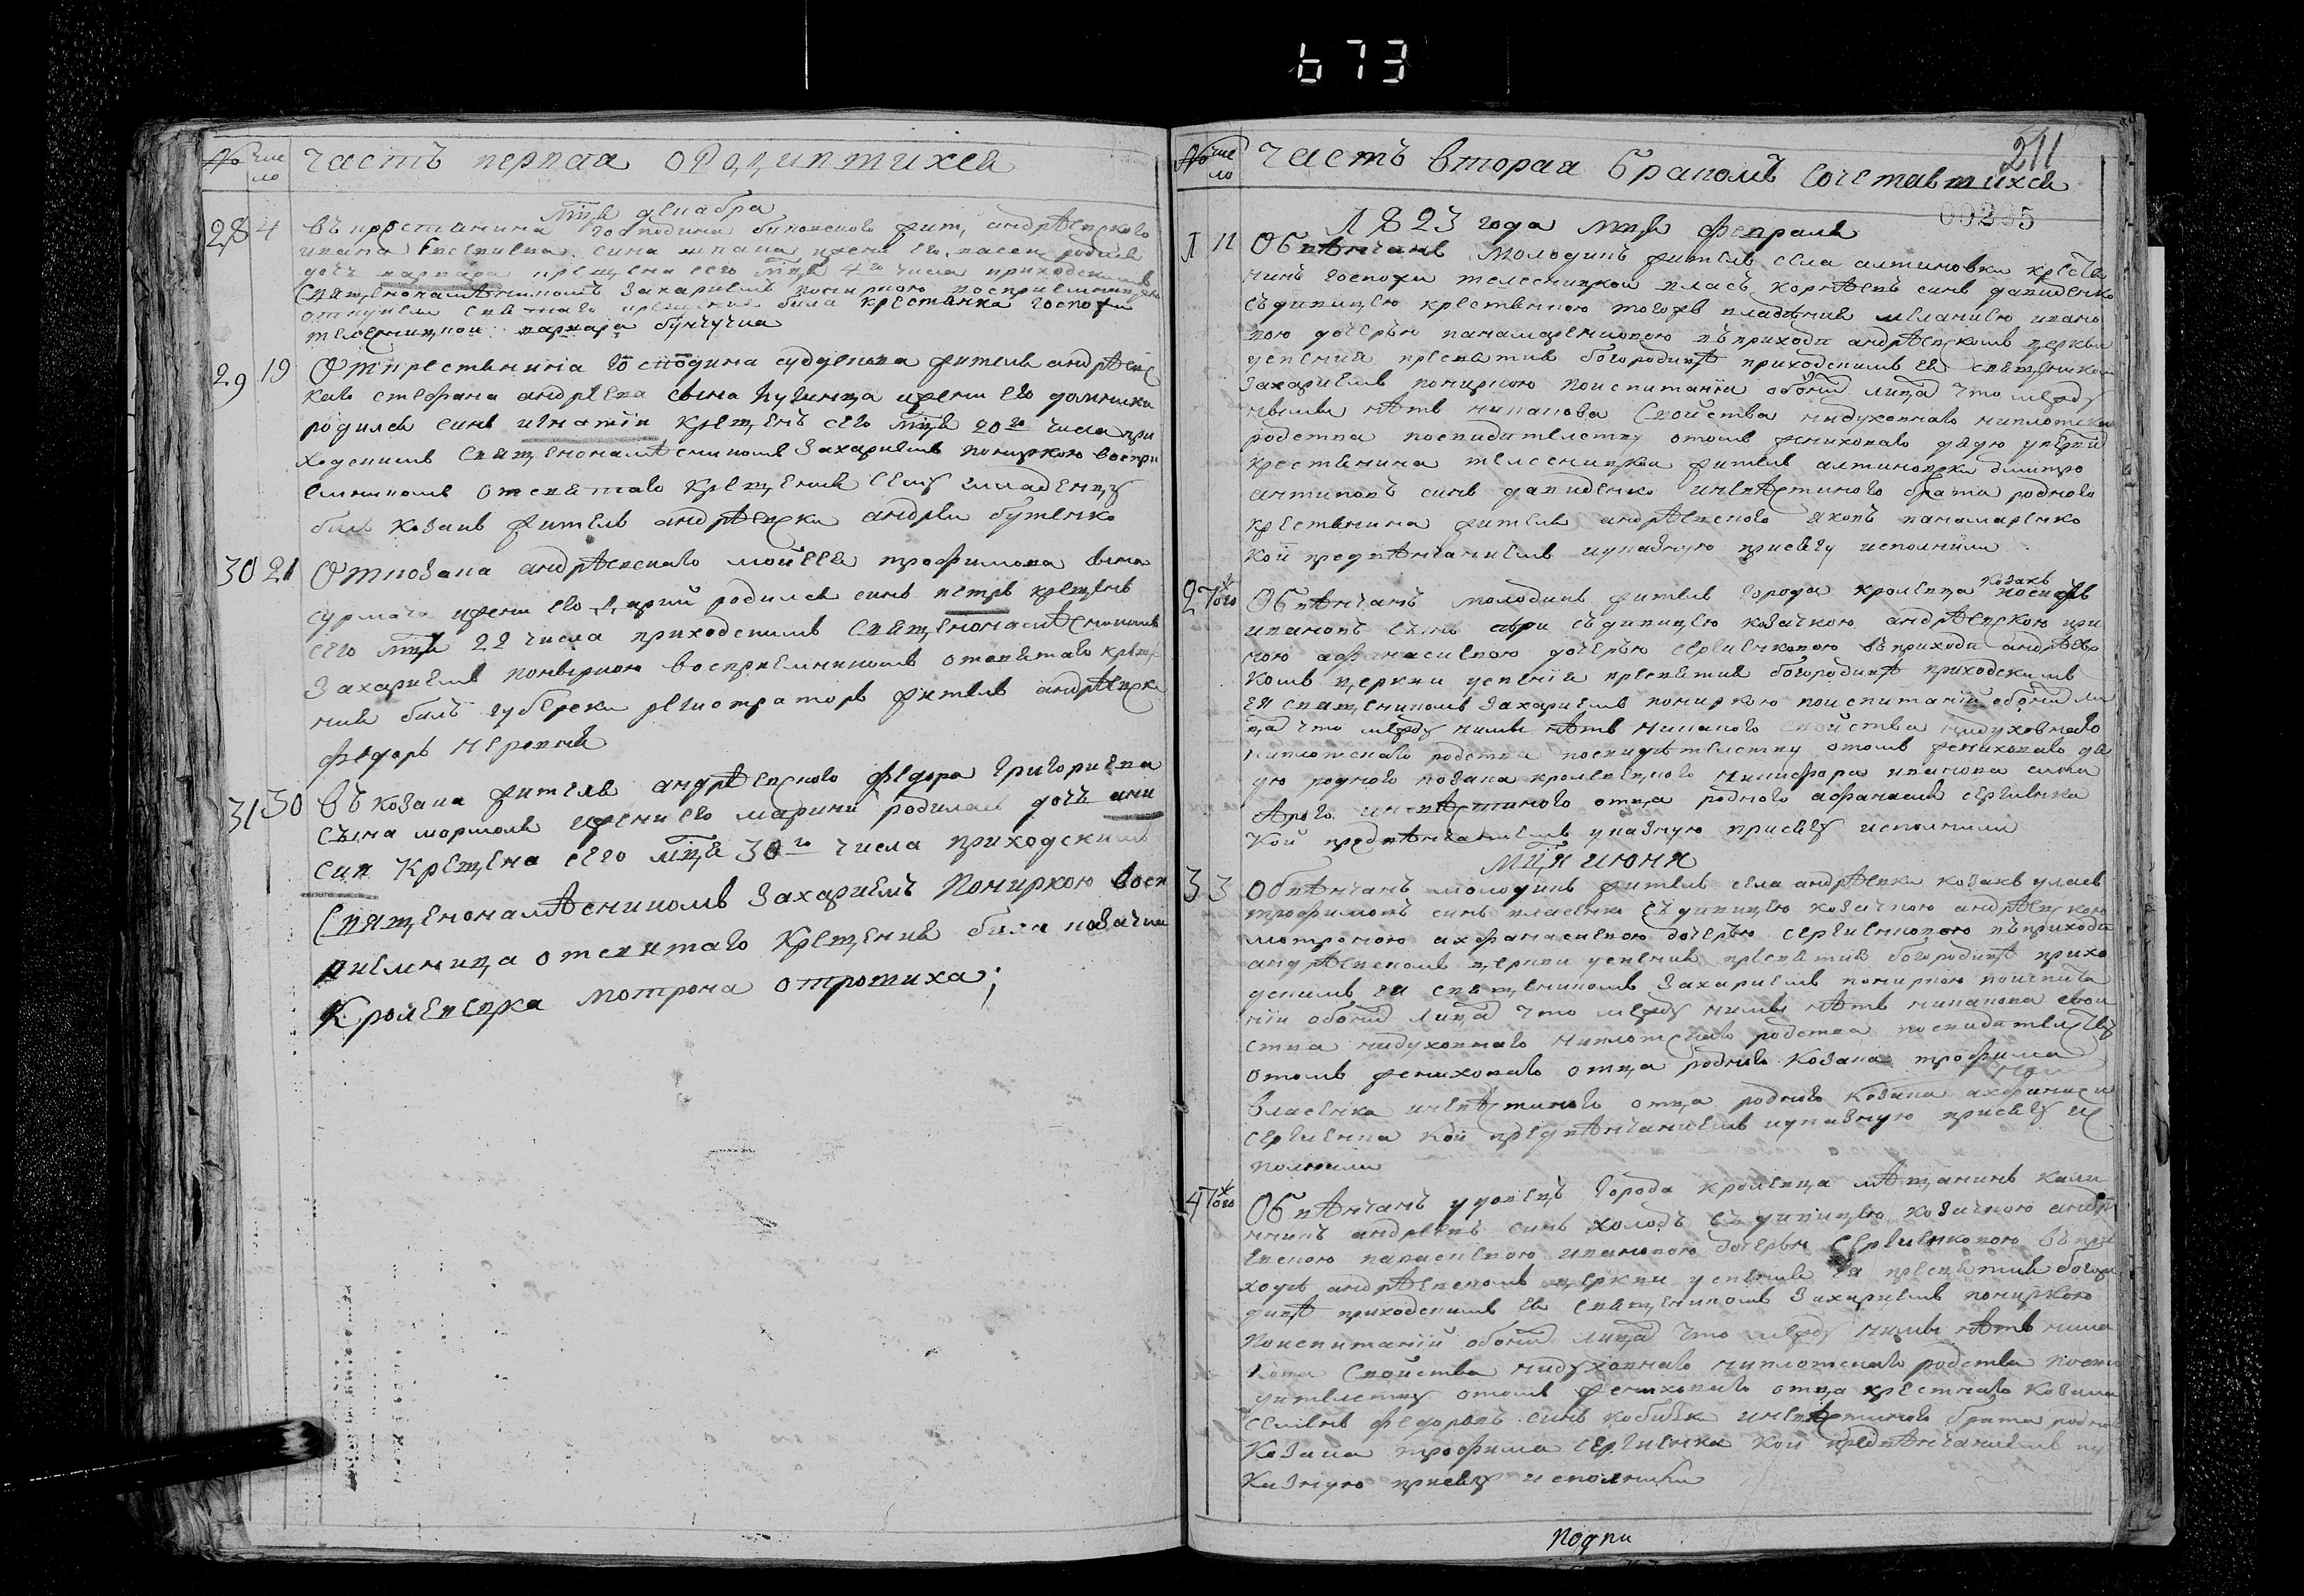 673
№ число
часть первая о родившихся
мця декабря
28 4
въ крестянина господина биковского жит, андрѣевского
ивана евсеевы сина жена его родила
дочъ варвара крещена сего мця 4го числа приходскимъ
священонамѣсникомъ Захариемъ пониркою восприемницею
от святаго крещения била крестянка госпожи
телесницкои варвара бунчучна
29 19
Отъ крестянина господина судденка жителя андрѣевс
каго стефана андрѣева сына жени его домники
родился синъ игнатий крещенъ сего мця 20го числа при
ходскимъ священонамѣсникомъ Захариемъ пониркою воспри
емникомъ отсвятаго крещения сему младенцу
билъ козакъ житель андрѣевки андрѣй бутенко
30 21
От козака андрѣевскаго мойсея трофимова сына
сурмача жени его дарии родился синъ петръ крещенъ
сего мця 22 числа приходскимъ священонамѣсникомъ
Захариемъ поныркою восприемникомъ отсвятаго креще
ния билъ губерски регистраторъ житель андрѣевки
федоръ
31 30
Въ козака жителя андрѣевского федора григориева
сына жени его марини родилась дочъ ани
сия крещена сего мця 30го числа приходскимъ
священонамѣсникомъ Захариемъ Пониркою восп
риемница отсвятаго крещения била козачка
Кролевецка мотрона отрошиха;
№ число
часть вторая бракомъ сочетавшихся
211
00235
1823 года мця февраля
1 11
Обвѣнчанъ молодикъ житель села алтиновки кресть
нинъ госпожи телесницкой власъ корнѣевъ синъ давиденко
съ дивицею крестянкою того же владѣния меланиею ивано
вою дочерью панамаренковою въ приходѣ андрѣевскомъ церкви
успения пресвятия богородицѣ приходскимъ ея священиком
Захариемъ понирко по испитании обоихъ лицъ что между
ними нѣтъ никакова свойства ни духовнаго ни плотска
родства посвидителству отомъ жениховаго дядю
крестянина телесницкои жителя алтиновки дмитро
антиповъ синъ давиденко и невѣстиного брата родного
крестянина жителя андрѣевского яковъ панамаренко
кои предвѣнчаниемъ указную присягу исполнили
2 того ж
Обвѣнчанъ молодикъ житель города кролевца козакъ иосифъ
ивановъ сынъ съ дивицею козачкою андрѣевскою ири
ною афанасиевою дочерью сергиенковою въ приходѣ андрѣевс
комъ церкви успения пресвятия богородицѣ приходскимъ
ея священикомъ Захариемъ понирко по испитании обоихъ ли
цъ что между ними нѣтъ никакого свойства ни духовнаго
ни плотскаго родства посвидѣтелству отомъ жениховаго дя
дю родного козака кролевецкого никифора иванова сина
и невѣстиного отца родного афанасия сергиенка
кои предвѣнчаниемъ указную присягу исполнили
мця июня
3 3
Обвѣнчанъ молодикъ житель села андрѣевки козакъ уласъ
трофимовъ синъ власенко съ дивицею козачкою андрѣевскою
мотроною ахфанасиевою дочерью сергиенковою въ приходѣ
андрѣевскомъ церкви успения пресвятия богородицѣ прихо
дскимъ ея священикомъ Захариемъ понирко по испита
нии обоихъ лицъ что между ними нѣтъ никакова свои
ства ни духовнаго ни плотскаго родства посвидителству
отомъ жениховаго отца родного козака трофима
власенка и невѣстиного отца родного козака ахфанасия
сергиенка кои предвѣнчаниемъ иуказную присягу ис
полнили
4 того ж
Обвѣнчанъ удовецъ города кролевца мѣщанинъ кали
нникъ андрѣевъ синъ холодъ съ дивицею козачкою андрѣ
евскою параскевою ивановою дочерью сергиенковою въ при
ходѣ андрѣевскомъ церкви успения ея пресвятия богоро
дицѣ приходскимъ ея священикомъ Захариемъ понирко
по испитании обоихъ лицъ что между ними нѣтъ ника
кова свойства ни духовнаго ни плотскаго родства посви
дителству отомъ жениховаго отца крестнаго козака
семенъ федоровъ синъ кобизка и невѣстиного брата родно
козака трофима сергиенка кои предвѣнчаниемъ иу
казную присягу исполнили
Подпи